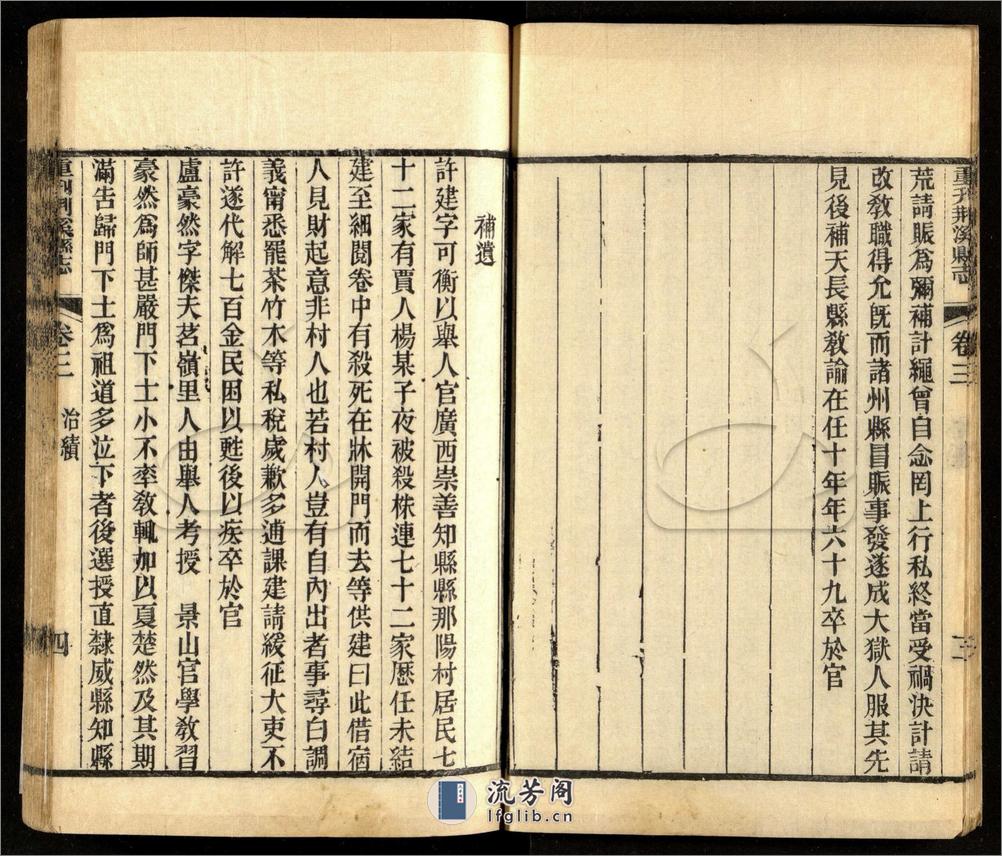 荒請賑爲彌補計繩曾自念罔上行私終當受禍決計請
改敎職得允旣而諸州縣冒賑事發遂成大獄人服其先
見後補天長縣敎諭在任十年年六十九卒於官
重刋荆溪縣志
卷三
三
補遺
許建字可衡以舉人官廣西崇善知縣縣那陽村居民七
十二家有賈人楊某子夜被殺株連七十二家歷任未結
建至細閱卷中有殺死在牀開門而去等供建曰此借宿
人見財起意非村人也若村人豈有自內出者事尋白調
義甯悉罷茶竹木等私稅歲歉多逋課建請緩征大吏不
許遂代解七百金民困以甦後以疾卒於官
盧豪然字傑夫茗嶺里人由舉人考授 景山官學敎習
豪然爲師甚嚴門下士小不率敎輒加以夏楚然及其期
滿告歸門下士爲祖道多泣下者後選授直隸威縣知縣
重刋荆溪縣志
卷三
治績
四
流芳阁
lfglib.cn